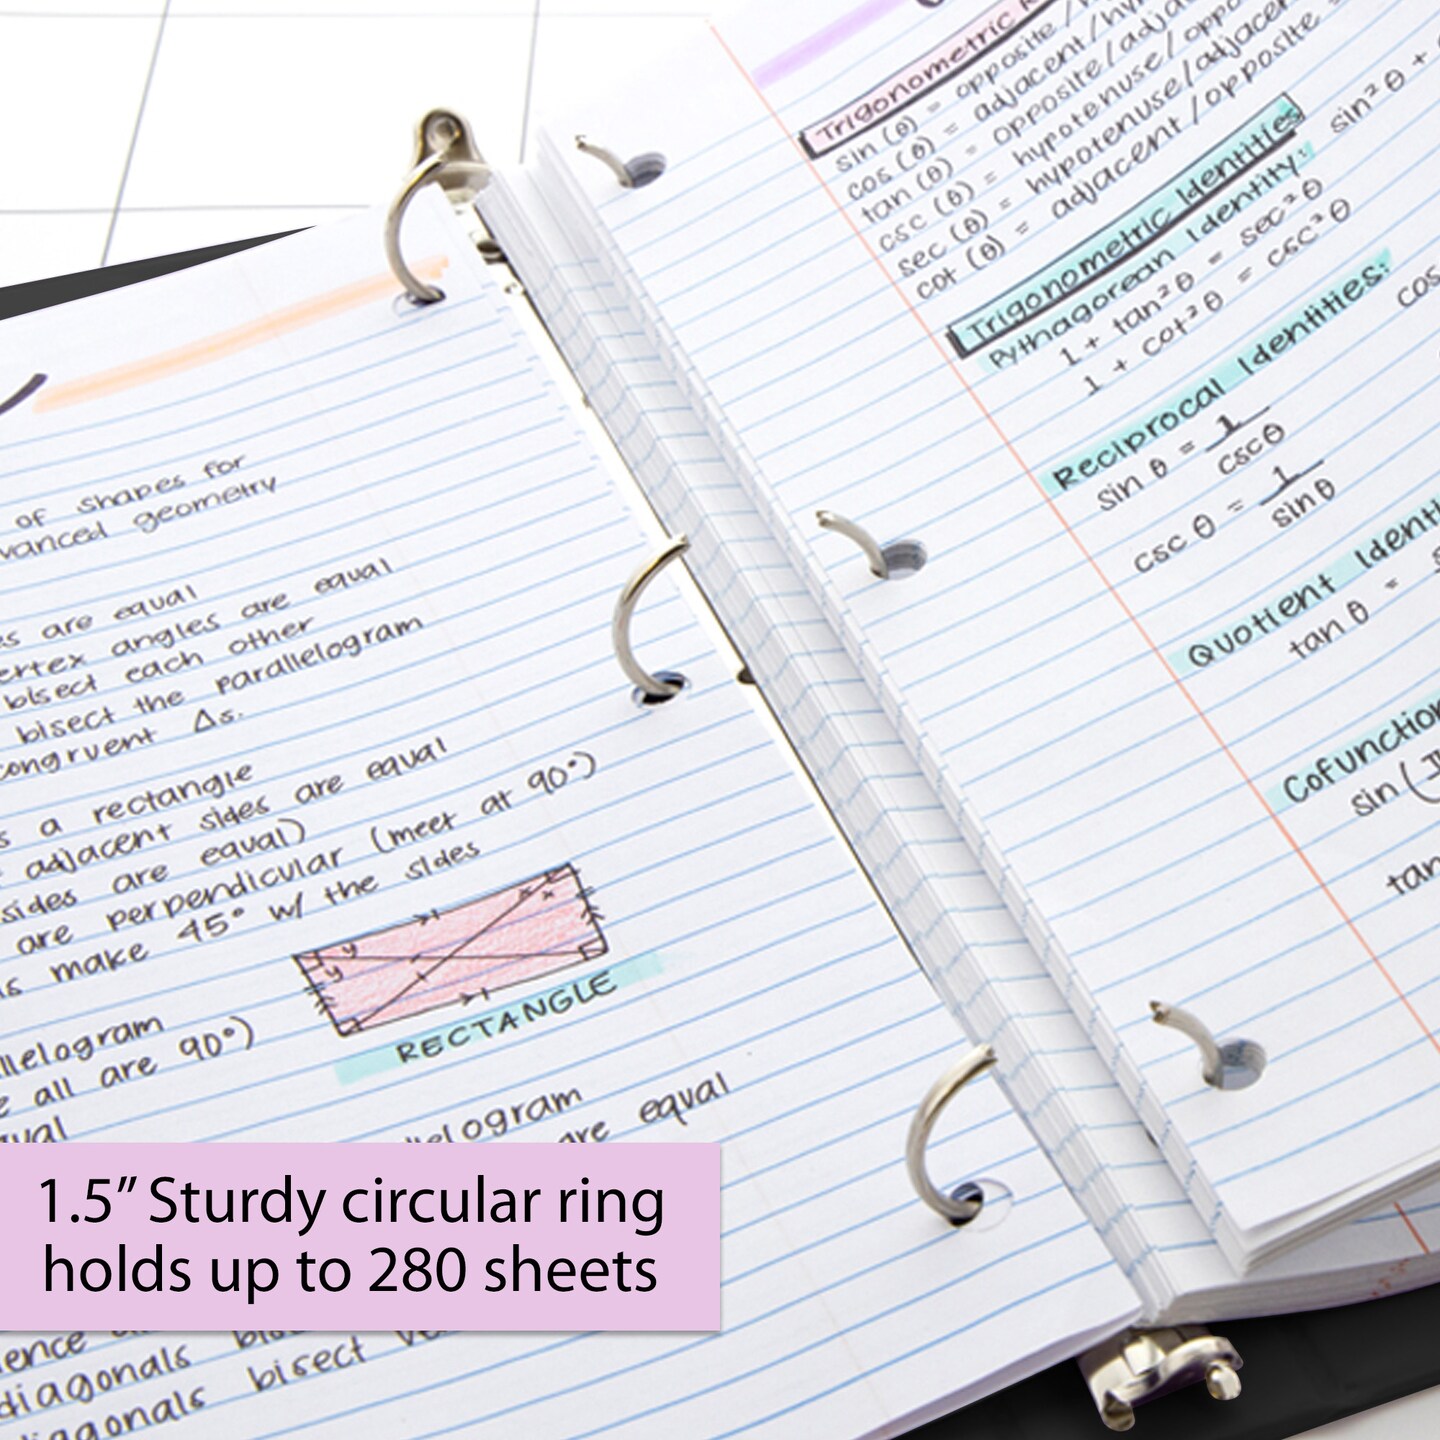 of shapes for
vanced geometry
es are equal
ertex angles are equal
bisect each other
bisect the parallelogram
congruent Δs.
s a rectangle
adjacent sides are equal
sides are equal)
are perpendicular (meet at 90°)
ls make 45° w/ the sides
RECTANGLE
llelogram
e all are 90°)
qual
llelogram
are equal
ence
diagonals
diagonals bisect ve
Trigonometric R
sin (θ) = opposite/h
cos (θ) = adjacent/hy
tan (θ) = opposite/adja
csc (θ) = hypotenuse/oppo
sec (θ) = hypotenuse/adjacen
cot (θ) = adjacent/opposite =
Trigonometric Identities
Pythagorean Identity: sin²θ +
1 + tan²θ = sec²θ
1 + cot²θ = csc²θ
Reciprocal Identities: cos
sin θ = 1/cscθ
csc θ = 1/sinθ
Quotient Identi
tan θ = s
Cofunction
sin (π
tan
1.5” Sturdy circular ring
holds up to 280 sheets